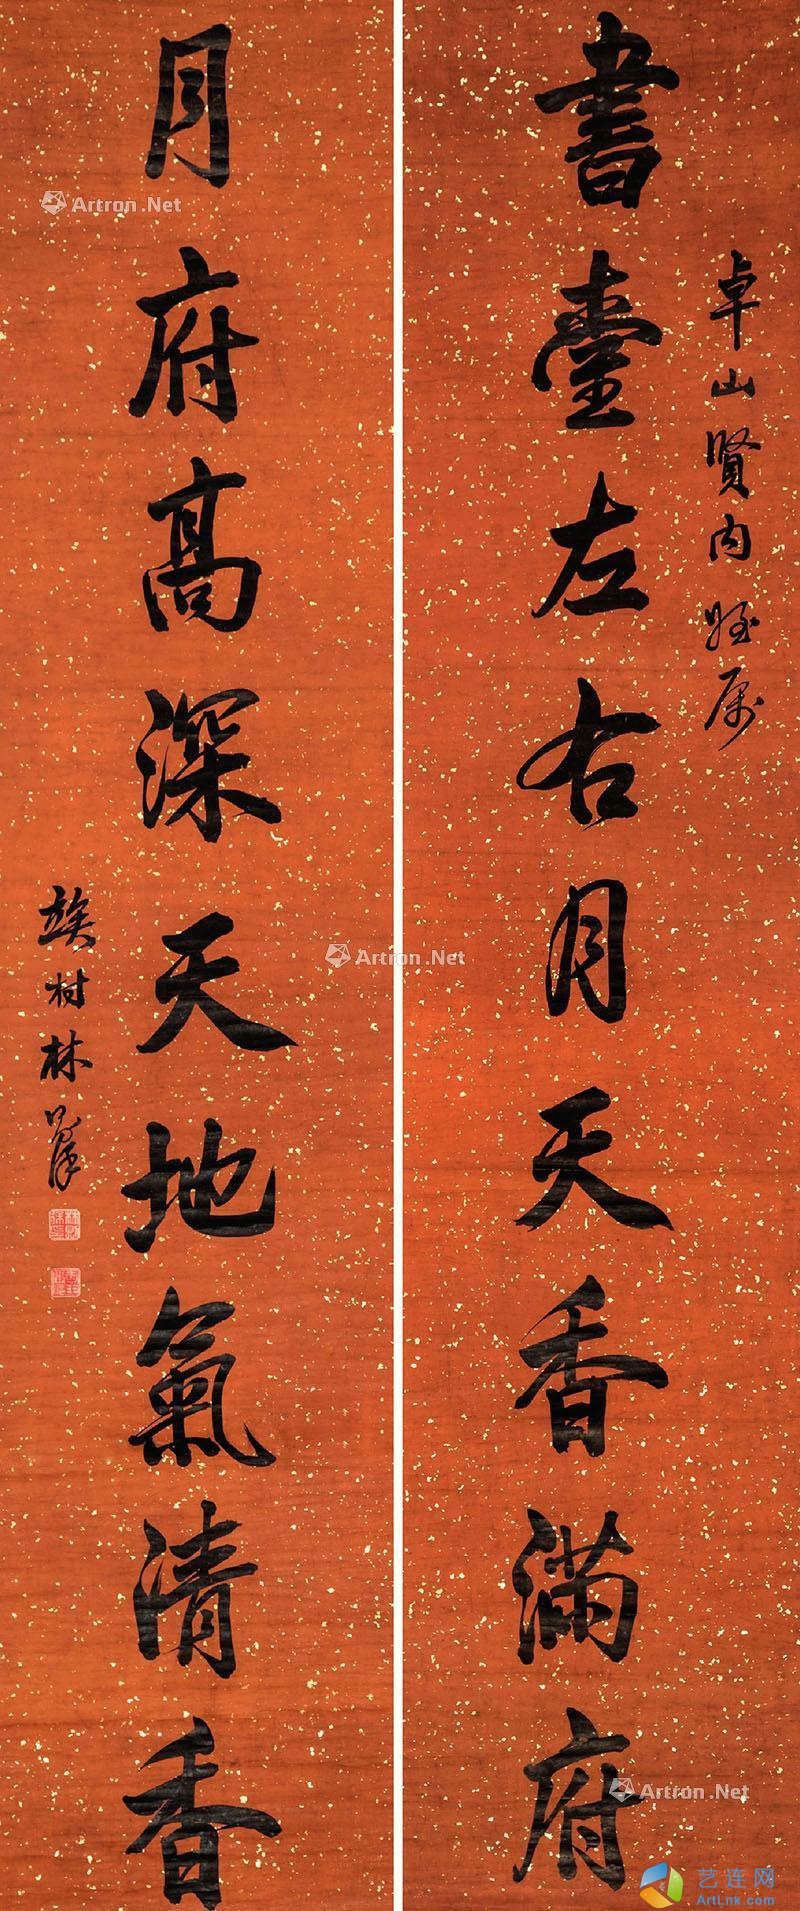 卓山賢內姪属
書臺左右月天香滿府
月府高深天地氣清香
竢村林
Artron.Net
Artron.Net
Artron.Net
艺连网
ArtLnk.com